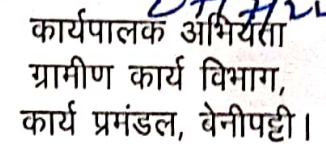 कार्यपालक अभियंता
ग्रामीण कार्य विभाग,
कार्य प्रमंडल, वेनीपट्टी।